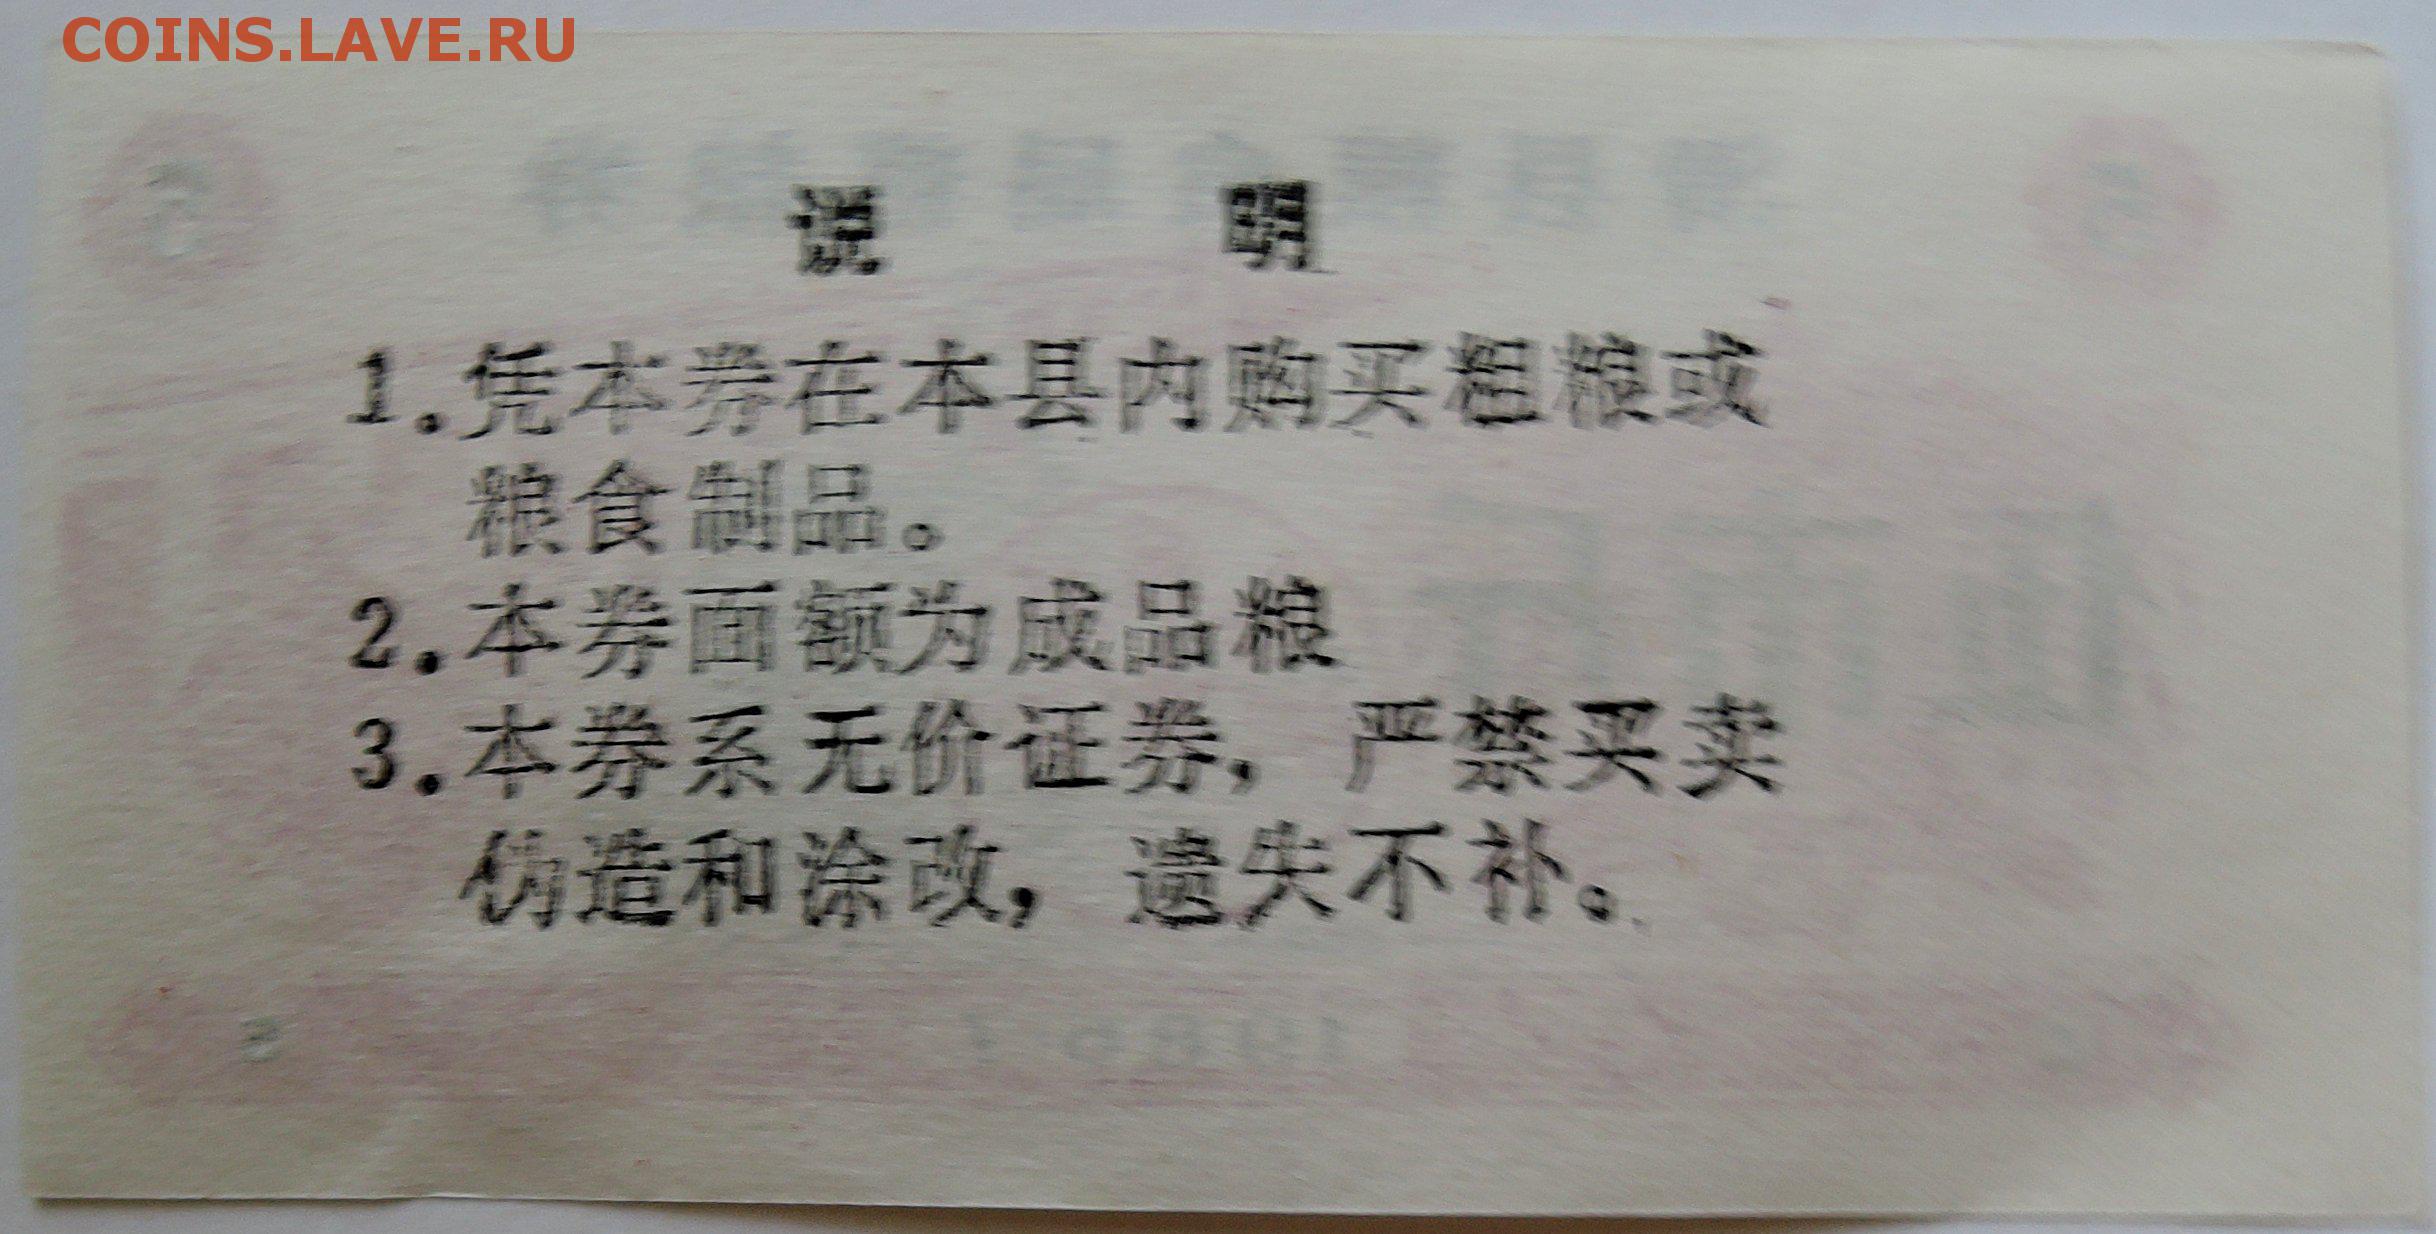 COINS.LAVE.RU
说 明
1.凭本券在本县内购买粗粮或
粮食制品。
2.本券面额为成品粮
3.本券系无价证券，严禁买卖
伪造和涂改，遗失不补。